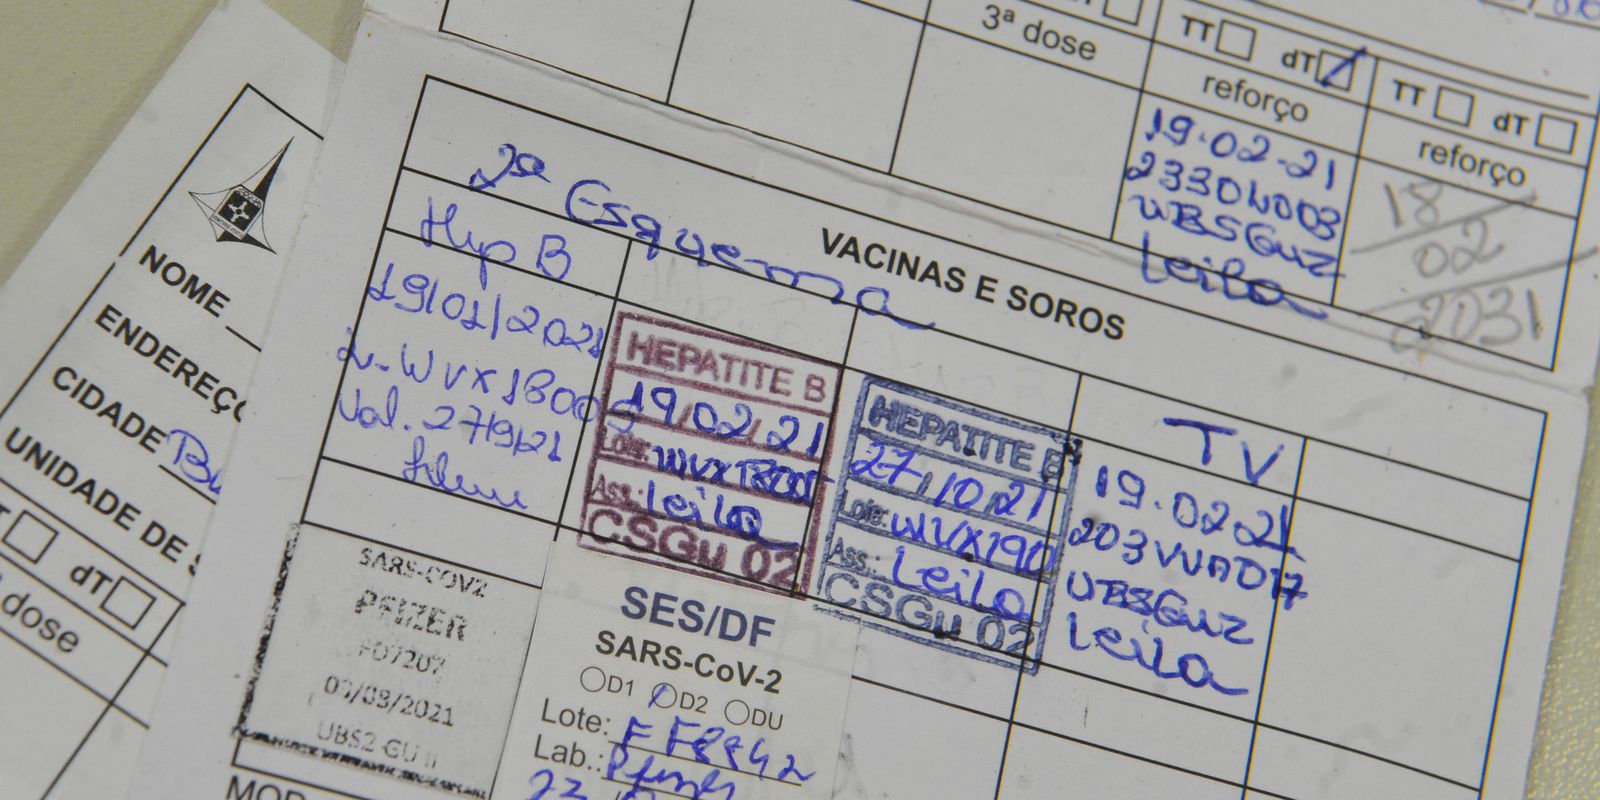 3ª dose
TT dT
reforço
19.02.21
UBSGuz
Leila
TT dT
reforço
18
02
2031
2º Esquema
VACINAS E SOROS
Hep B
19/01/2021
Val. 27/9/21
HEPATITE B
19/02/21
Lote:
Ass.: Leila
CSGu 02
HEPATITE B
27/10/21
Lote: WVX190
Ass.: Leila
CSGu 02
TV
19.02 21
UBSGuz
Leila
SARS-COV2
PFIZER
FD7207
UBS2 GU II
SES/DF
SARS-CoV-2
D1 D2 DU
Lote:
Lab.: Pfizer
NOME
ENDEREÇ
CIDADE
UNIDADE DE S
dT
dose